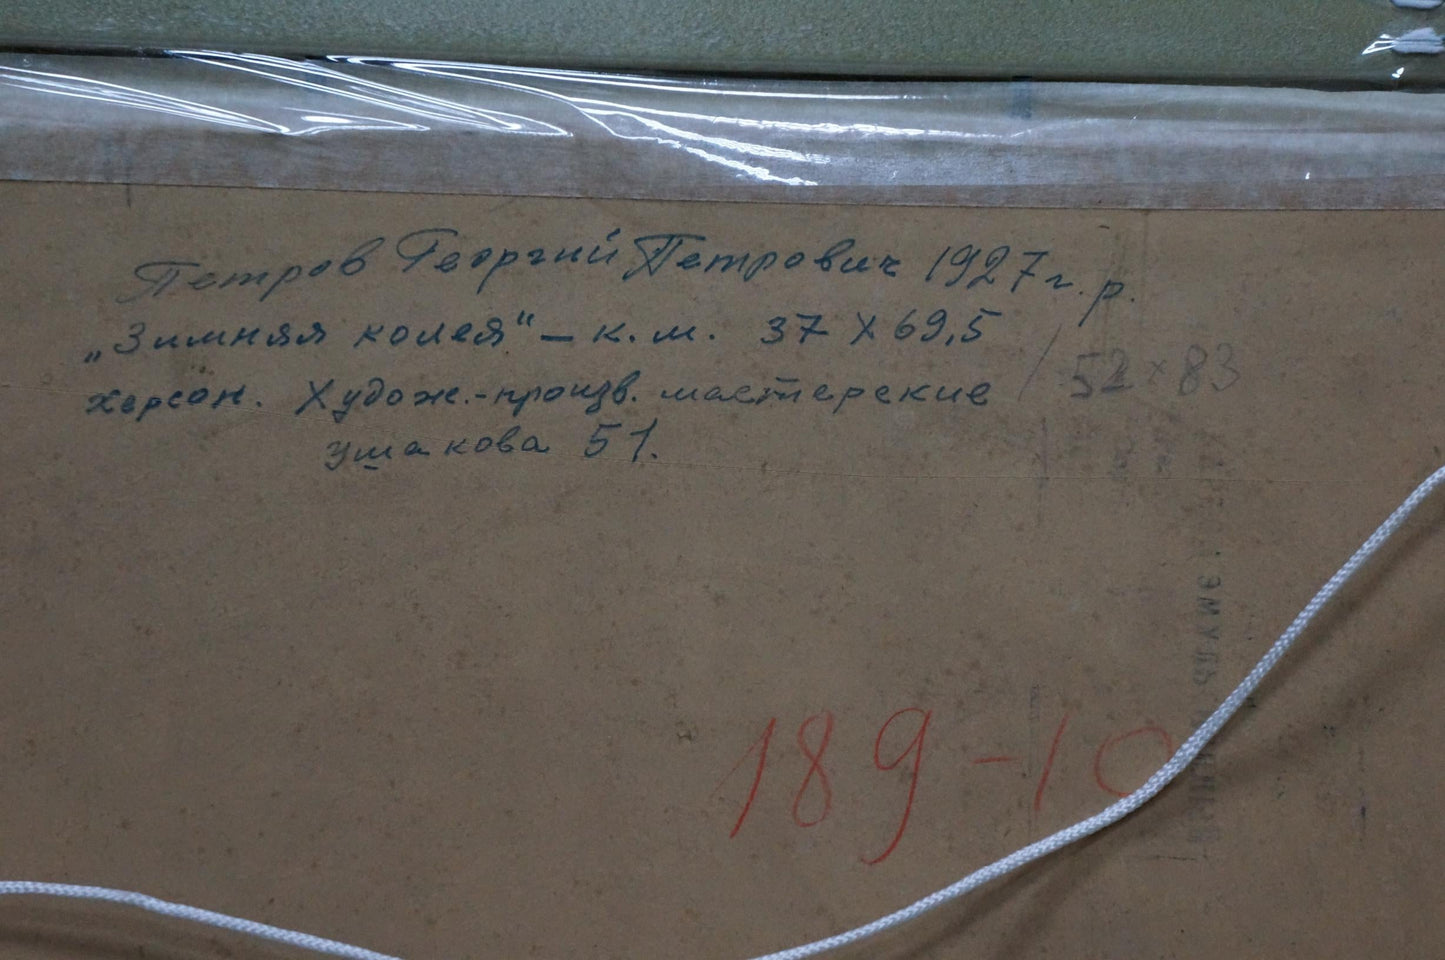 Петров Георгий Петрович 1927 г. р.
„Зимняя колея" – к. м. 37 х 69,5
52 х 83
Херсон. Худож.-произв. мастерские
Ушакова 51.
189-10